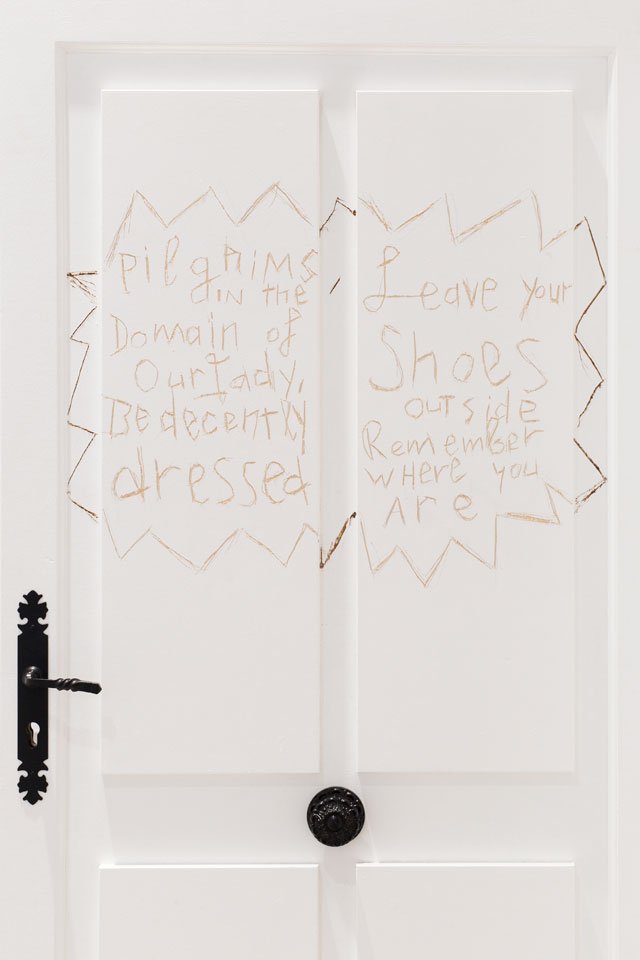 PilgRiMS
iN the
Domain of
Our Lady,
Be decently
dressed
Leave your
Shoes
outside
Remember
wHere you
Are